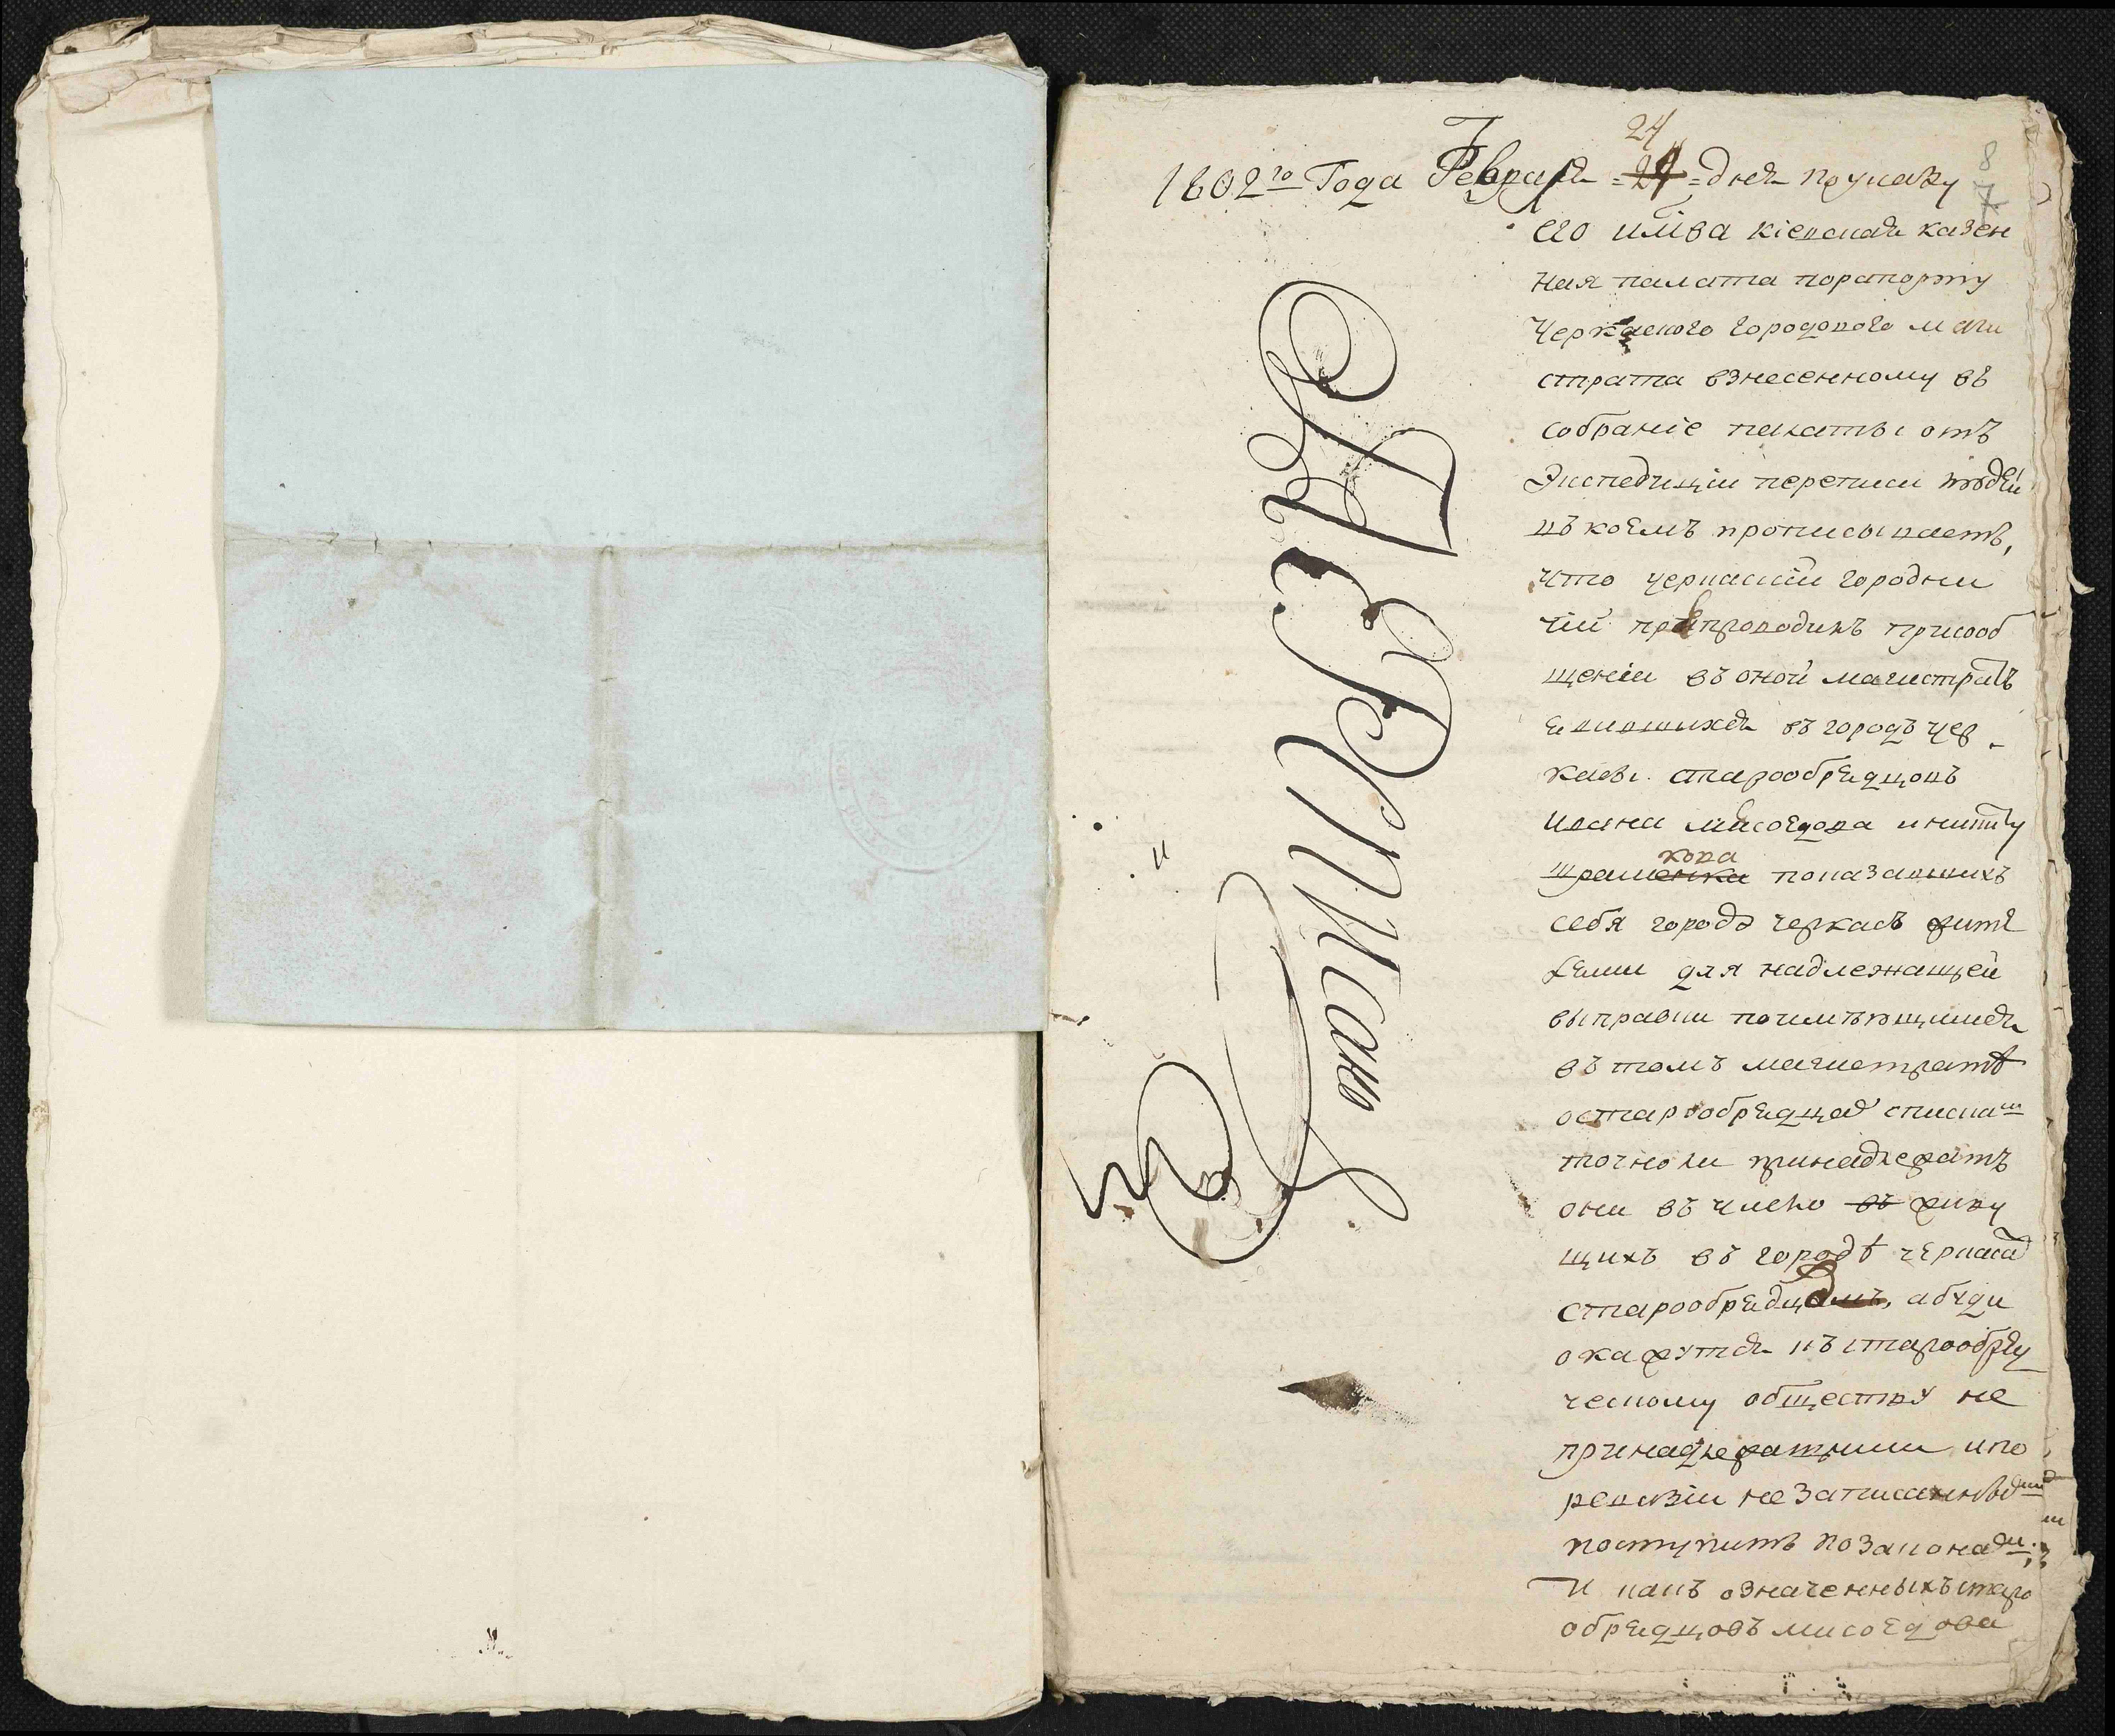 24
8
7
1802го Года Февраля =24= дня по указу
его имп̃ва кіевская казен
ная палата по рапорту
Черкаского городового маги
страта взнесенному въ
собраніе палаты отъ
Экспедиціи переписи людей
въ коемъ прописываетъ,
что черкаскій городни
чій препроводилъ при сооб
щеніи въ оной магистратъ
явившихся въ городъ чер
касы старообрядцовъ
ивана мясоедова и никиту
кова
показавшихъ
себя города черкасъ жите
лями для надлежащей
выправки по имѣющимся
въ томъ магистратѣ
о старообрядцахъ спискам
точно ли принадлежатъ
они въ число въ живу
щихъ въ городѣ черкасах
старообрядцамъ, а буди
окажутся къ старообряд
ческому обществу не
принадлежащими и по
ревизіи не записанными
поступить по законам;
И какъ означенныхъ старо
обрядцовъ мясоедова
СЛЕРПИСано